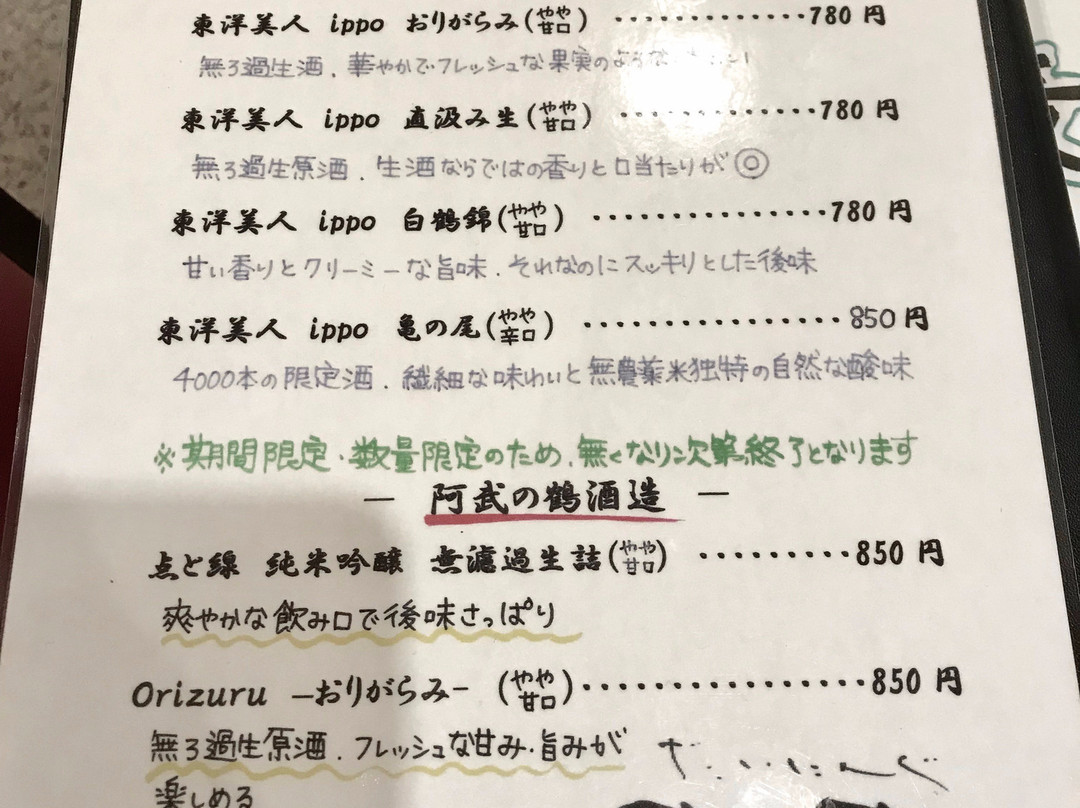 東洋美人 ippo おりがらみ(やや甘口) ・・・・・・・・・・・・・780円
無ろ過生酒、華やかでフレッシュな果実のような
東洋美人 ippo 直汲み生(やや甘口) ・・・・・・・・・・・・・780円
無ろ過生原酒、生酒ならではの香りと口当たりが◎
東洋美人 ippo 白鶴錦(やや甘口) ・・・・・・・・・・・・・・・780円
甘い香りとクリーミーな旨味、それなのにスッキリとした後味
東洋美人 ippo 亀の尾(やや辛口) ・・・・・・・・・・・・・・・・・850円
4000本の限定酒、繊細な味わいと無農薬米独特の自然な酸味
※期間限定・数量限定のため、無くなり次第終了となります
― 阿武の鶴酒造 ―
点と線 純米吟醸 無濾過生詰(やや甘口) ・・・・・・・・・850円
爽やかな飲み口で後味さっぱり
Orizuru ―おりがらみ― (やや甘口)・・・・・・・・・・・・・・・・・850円
無ろ過生原酒、フレッシュな甘み・旨みが
楽しめる